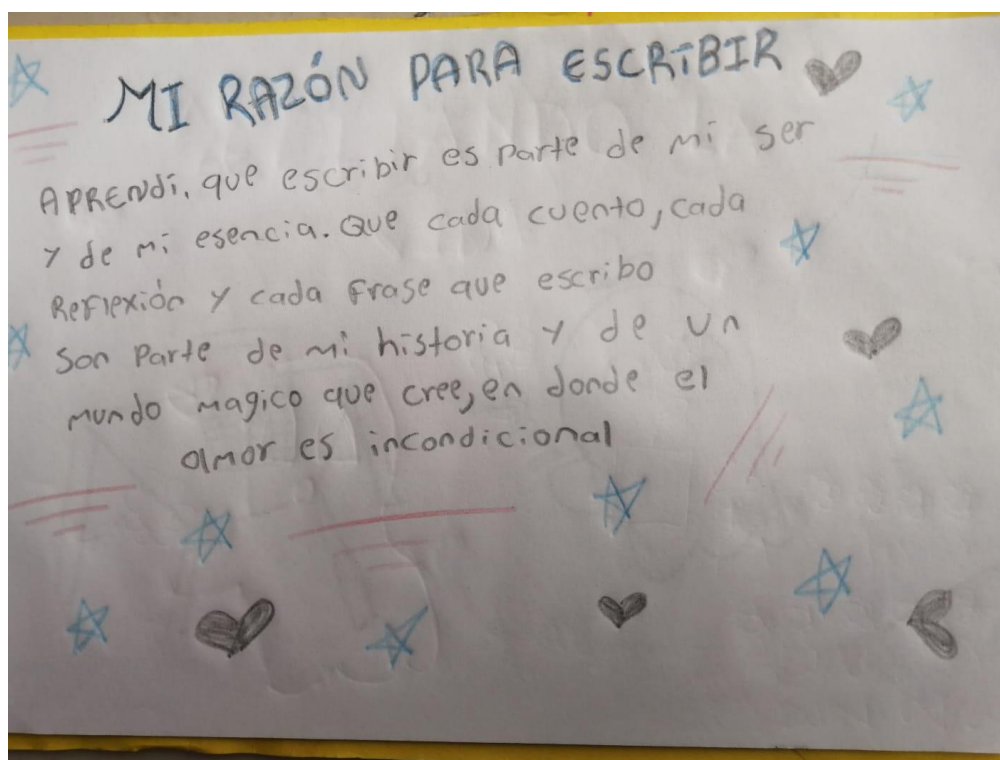 MI RAZÓN PARA ESCRIBIR
APRENdí, que escribir es parte de mi ser
y de mi esencia. Que cada cuento, cada
Reflexión y cada frase que escribo
son parte de mi historia y de un
mundo magico que cree, en donde el
amor es incondicional